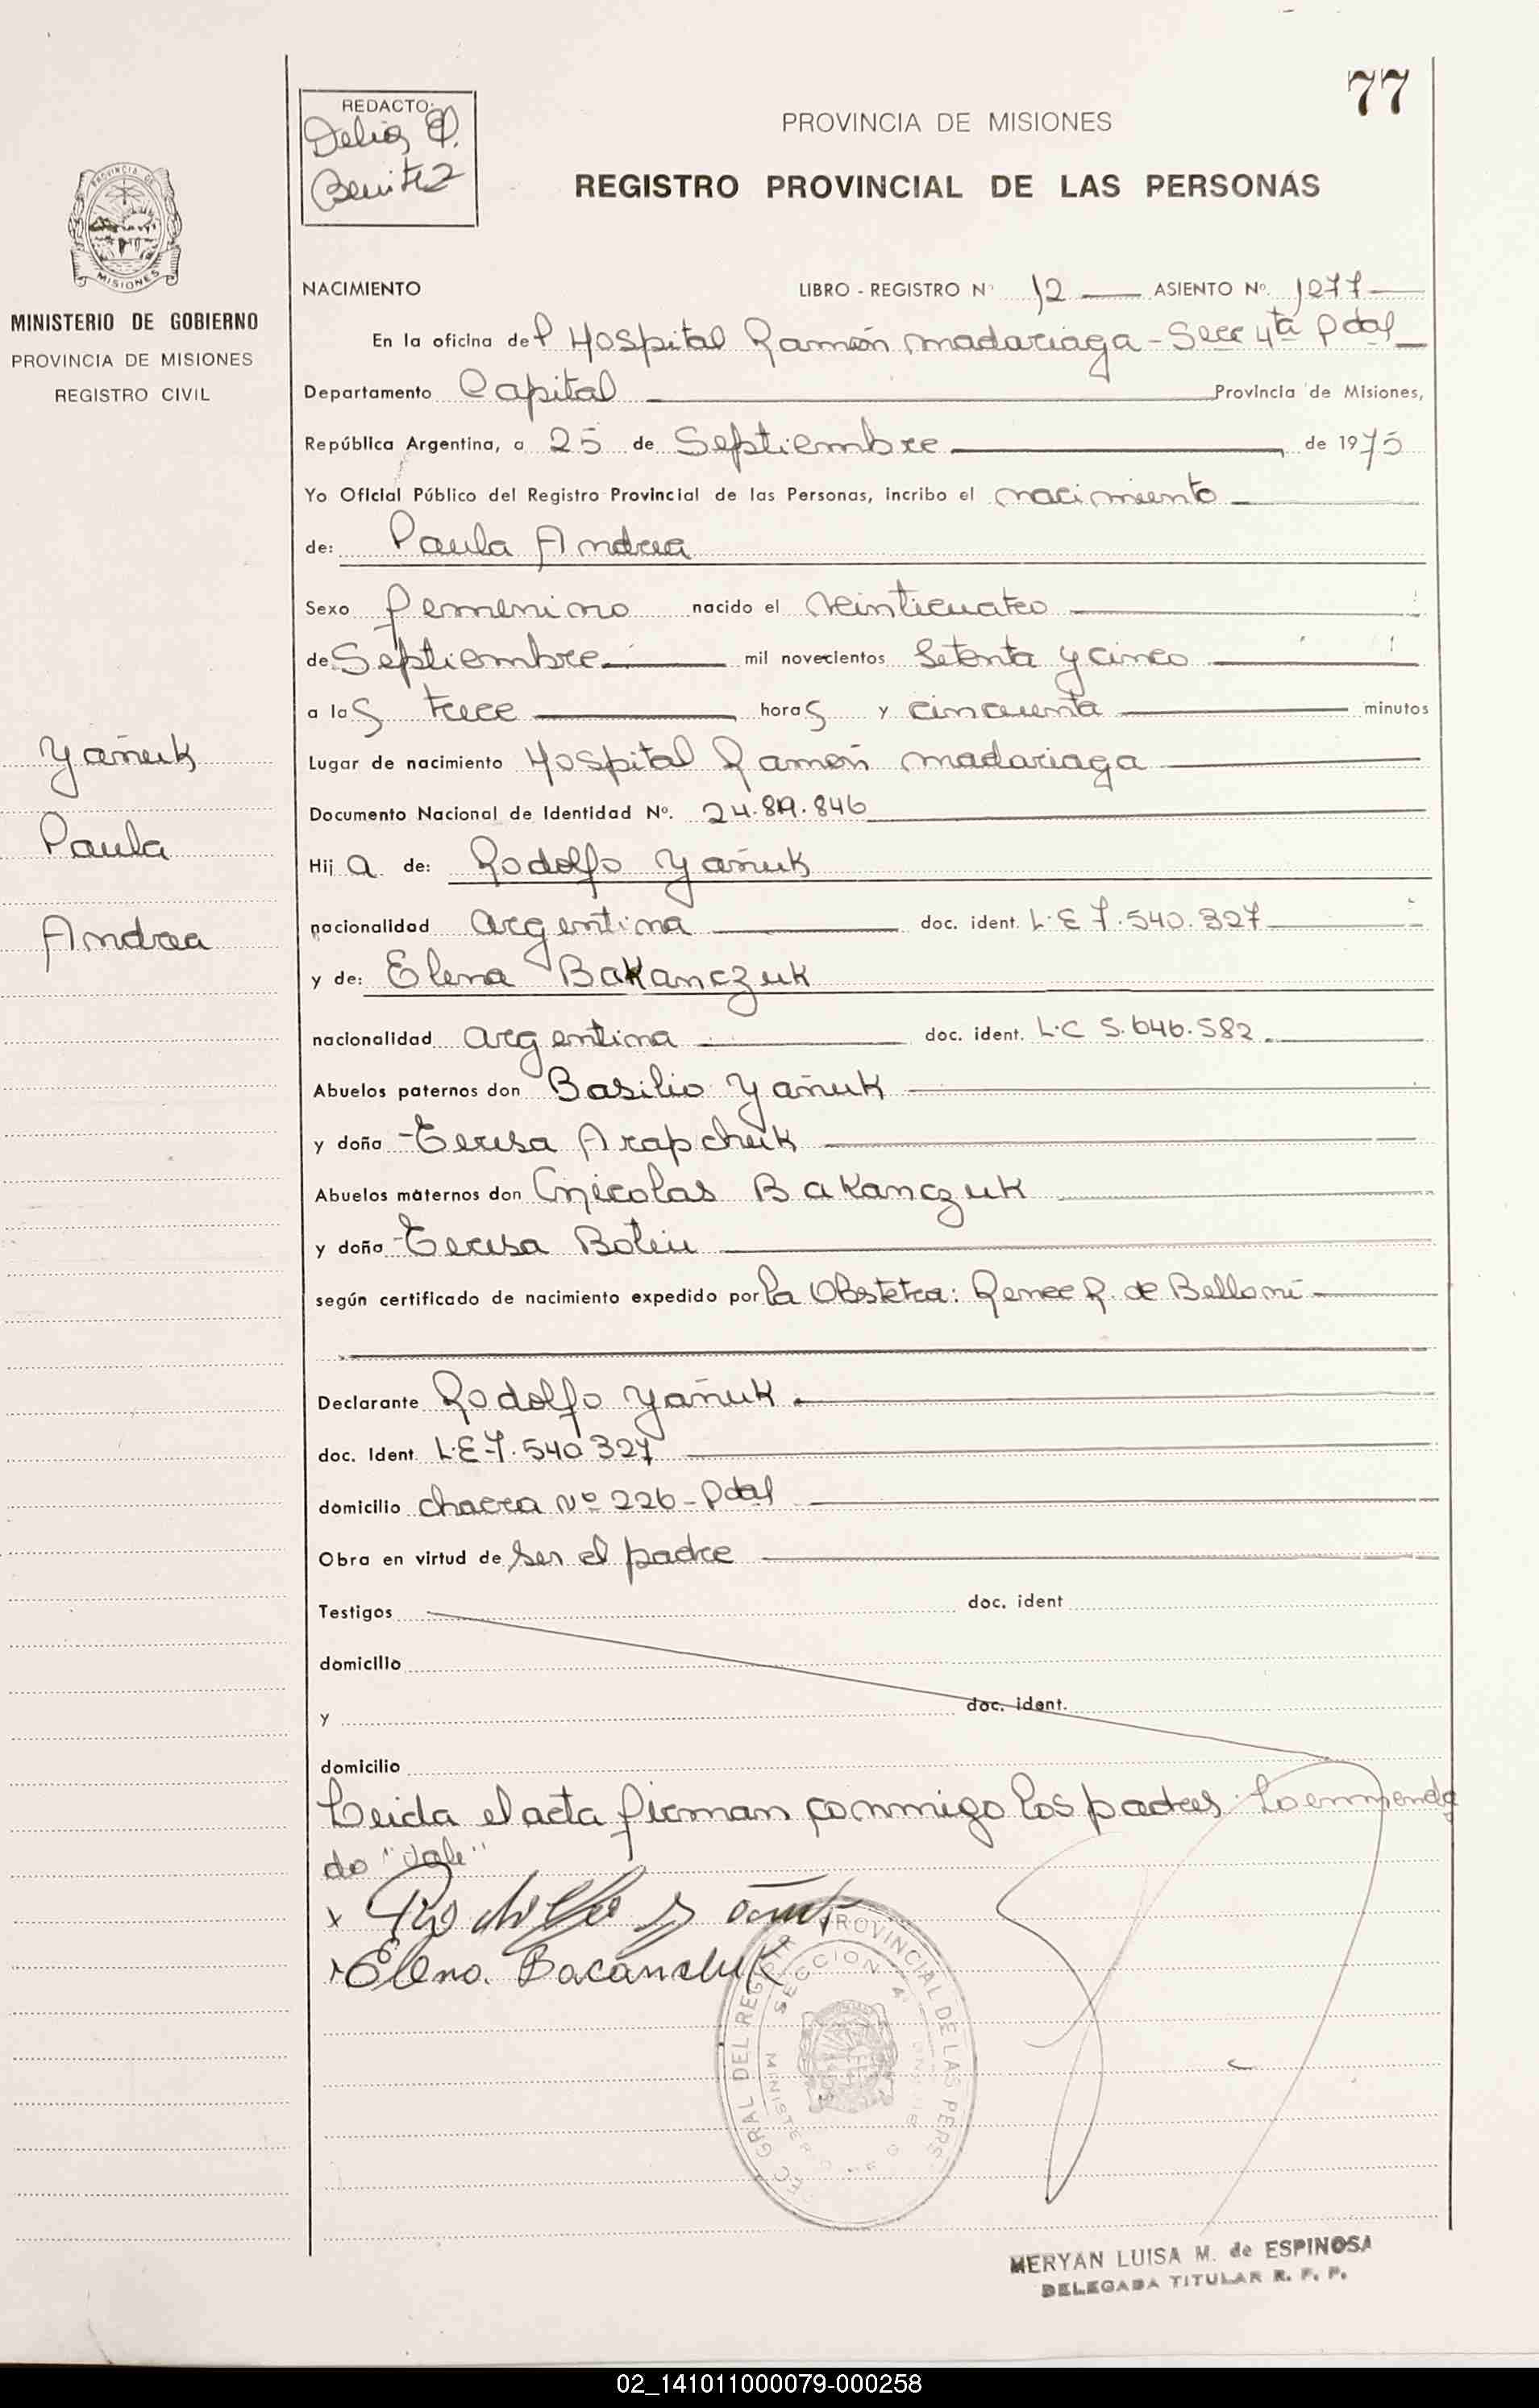 77
REDACTO:
Delia
Benitez
PROVINCIA DE MISIONES
REGISTRO PROVINCIAL DE LAS PERSONAS
PROVINCIA DE
MISIONES
MINISTERIO DE GOBIERNO
PROVINCIA DE MISIONES
REGISTRO CIVIL
NACIMIENTO LIBRO - REGISTRO Nº 12 ASIENTO Nº. 1277
En la oficina del Hospital Ramón Madariaga - Secc 4ta Pdas
Departamento Capital Provincia de Misiones,
República Argentina, a 25 de Septiembre de 1975
Yo Oficial Público del Registro Provincial de las Personas, incribo el nacimiento
de: Paula Andrea
Sexo femenino nacido el veinticuatro
de Septiembre mil novecientos Setenta y cinco
a las trece horas y cincuenta minutos
Yañuk
Paula
Andrea
Lugar de nacimiento Hospital Ramón Madariaga
Documento Nacional de Identidad Nº. 24.819.846
Hija de: Rodolfo Yañuk
nacionalidad argentina doc. ident. L.E 7.540.327
y de: Elena Bakanczuk
nacionalidad argentina doc. ident. L.C 5.646.582
Abuelos paternos don Basilio Yañuk
y doña Teresa Arapchuk
Abuelos maternos don Nicolas Bakanczuk
y doña Teresa
según certificado de nacimiento expedido por la Obstetra: Renee R. de Belloni
Declarante Rodolfo Yañuk.
doc. Ident L.E 7.540 327
domicilio chacra Nº 226 - Pdas
Obra en virtud de ser el padre
Testigos doc. ident
domicilio
y doc. ident.
domicilio
Leida el acta firman conmigo los padres. Lo enmenda
do "Vale"
x Rodolfo Yañuk
x Elena Bacanchuk
GRAL DEL REGISTRO PROVINCIAL DE LAS PERS
SECCION 4
MINISTERIO DE G
MERYAN LUISA M. de ESPINOSA
DELEGADA TITULAR R. P. P.
02_141011000079-000258